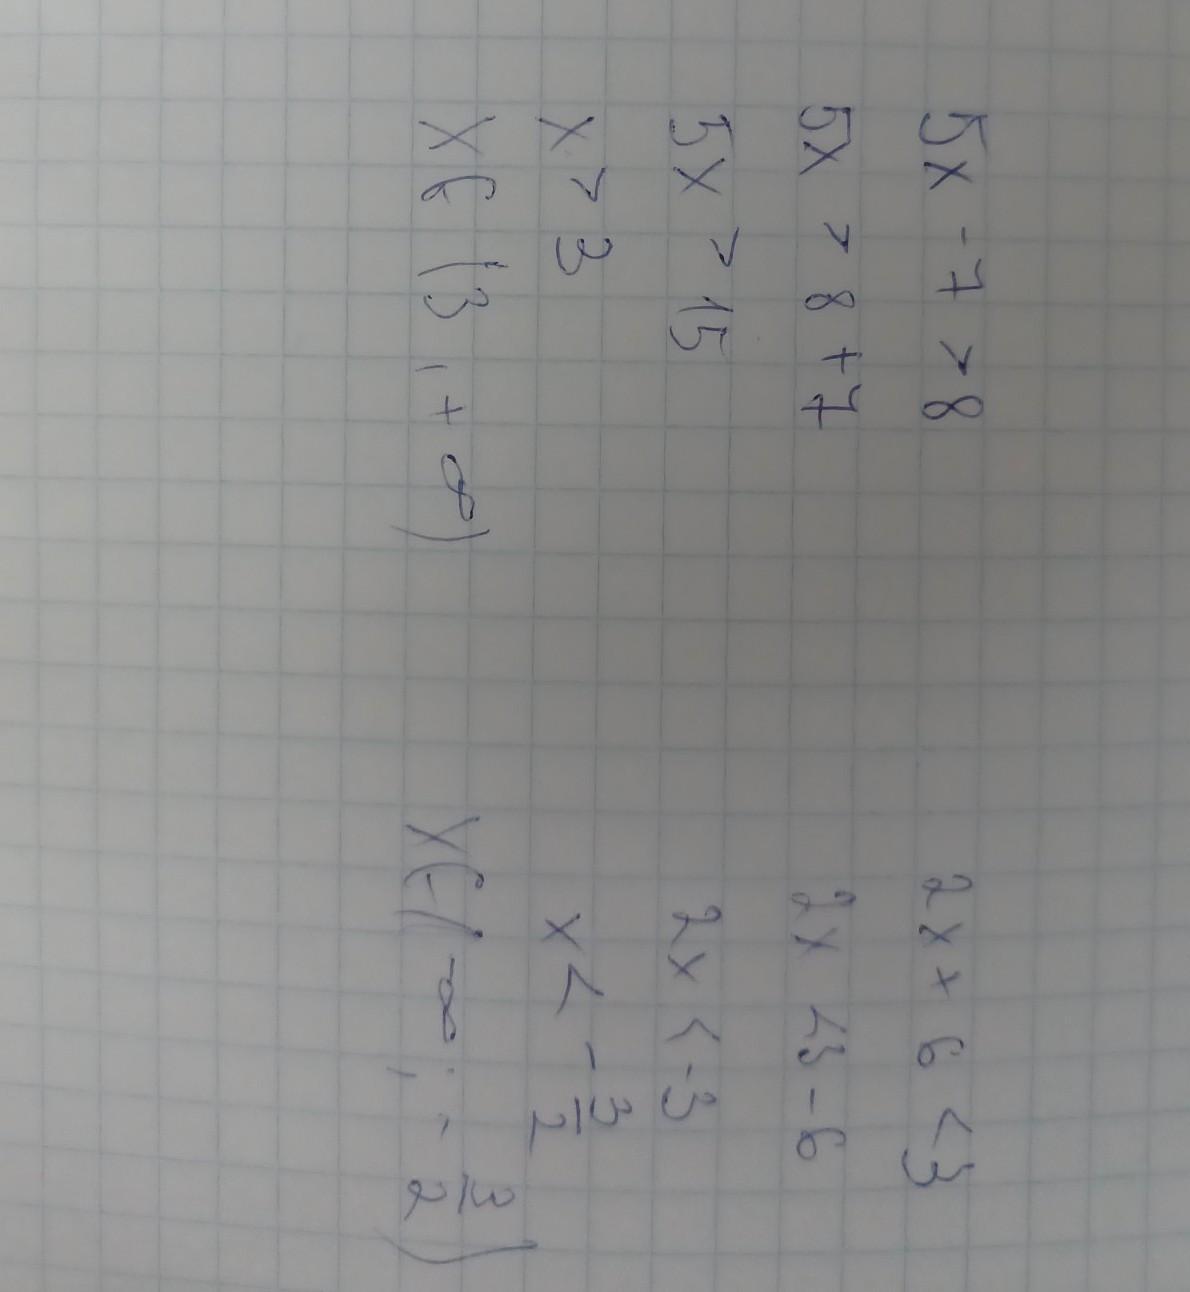 5x - 7 > 8
5x > 8 + 7
5x > 15
x > 3
x ∈ (3, +∞)
2x + 6 < 3
2x < 3 - 6
2x < -3
x < - 3/2
x ∈ (-∞; - 3/2)